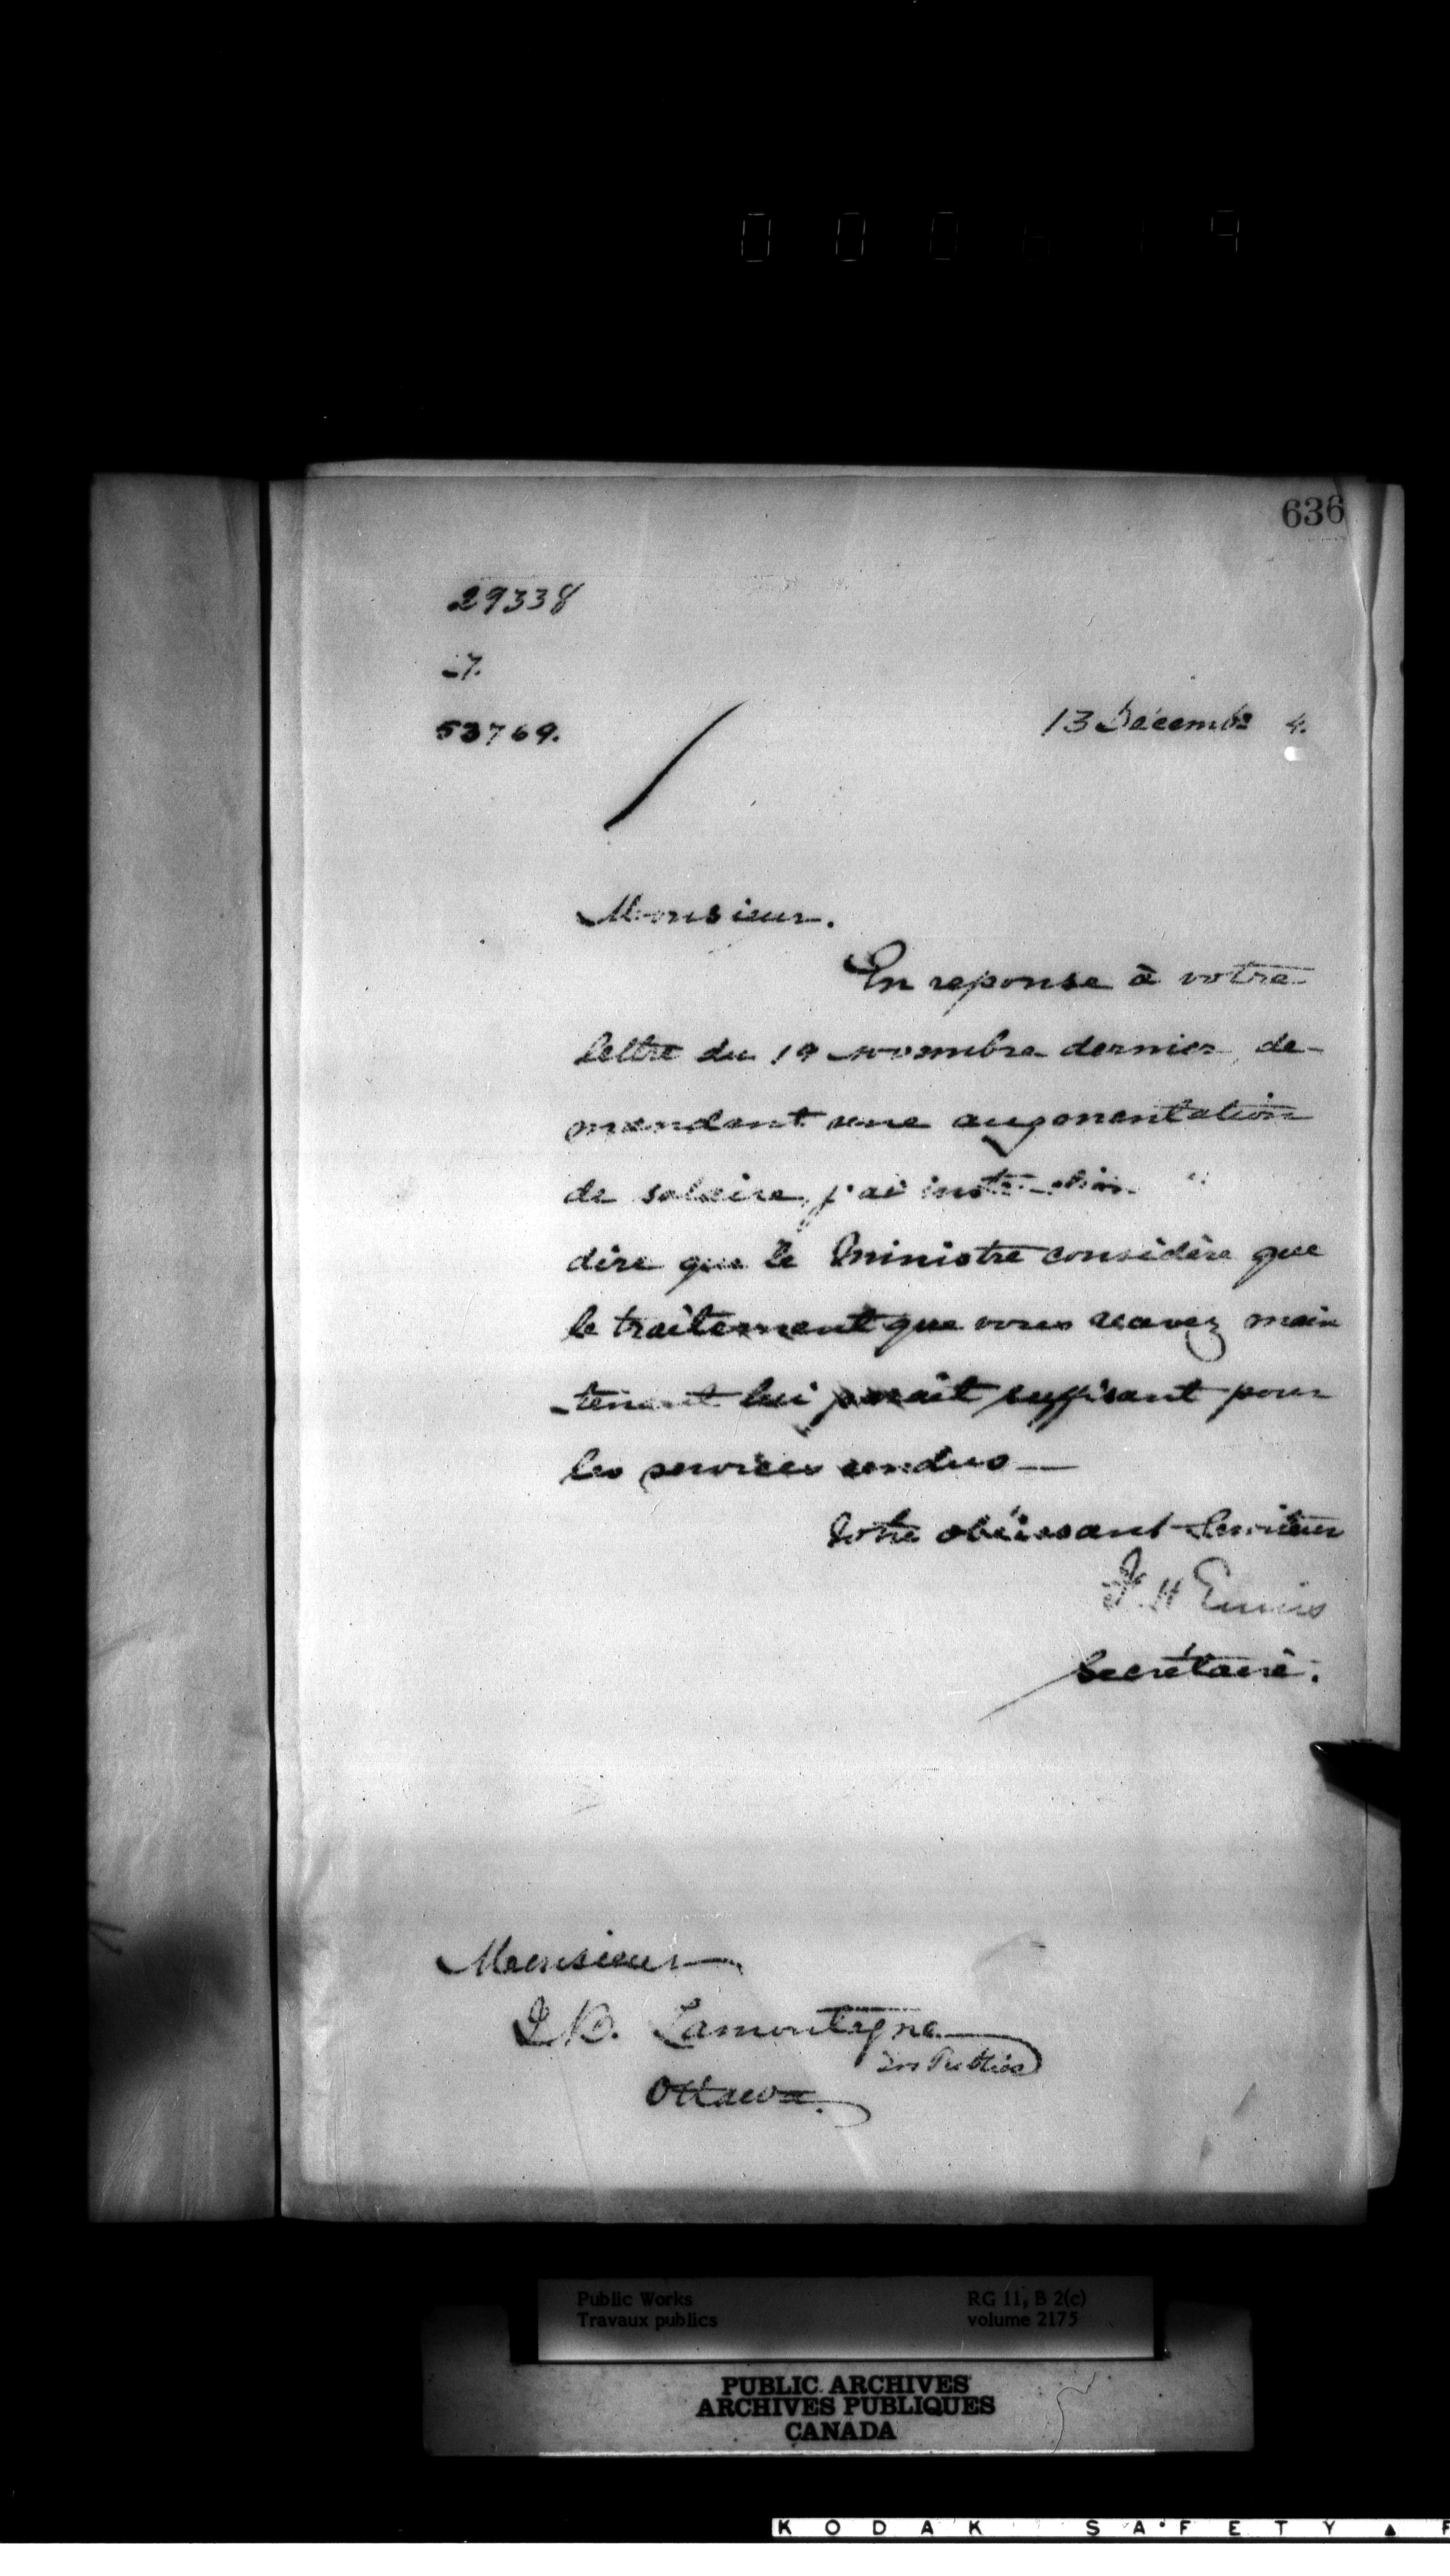 636
29338
-7.
53769.
13 Décembre 4.
Monsieur.
En reponse à votre
lettre du 19 novembre dernier de-
mandant une augmentation
de salaire, j'ai instruction
dire que le Ministre considère que
le traitement que vous recevez main
-tenant lui parait suffisant pour
les services rendus —
Votre obéissant Serviteur
F. H Ennis
Secrétaire.
Monsieur
J. B. Lamontagne
Ottawa.
Public Works
Travaux publics
RG 11, B 2(c)
volume 2175
PUBLIC ARCHIVES
ARCHIVES PUBLIQUES
CANADA
KODAK SAFETY ▲ F